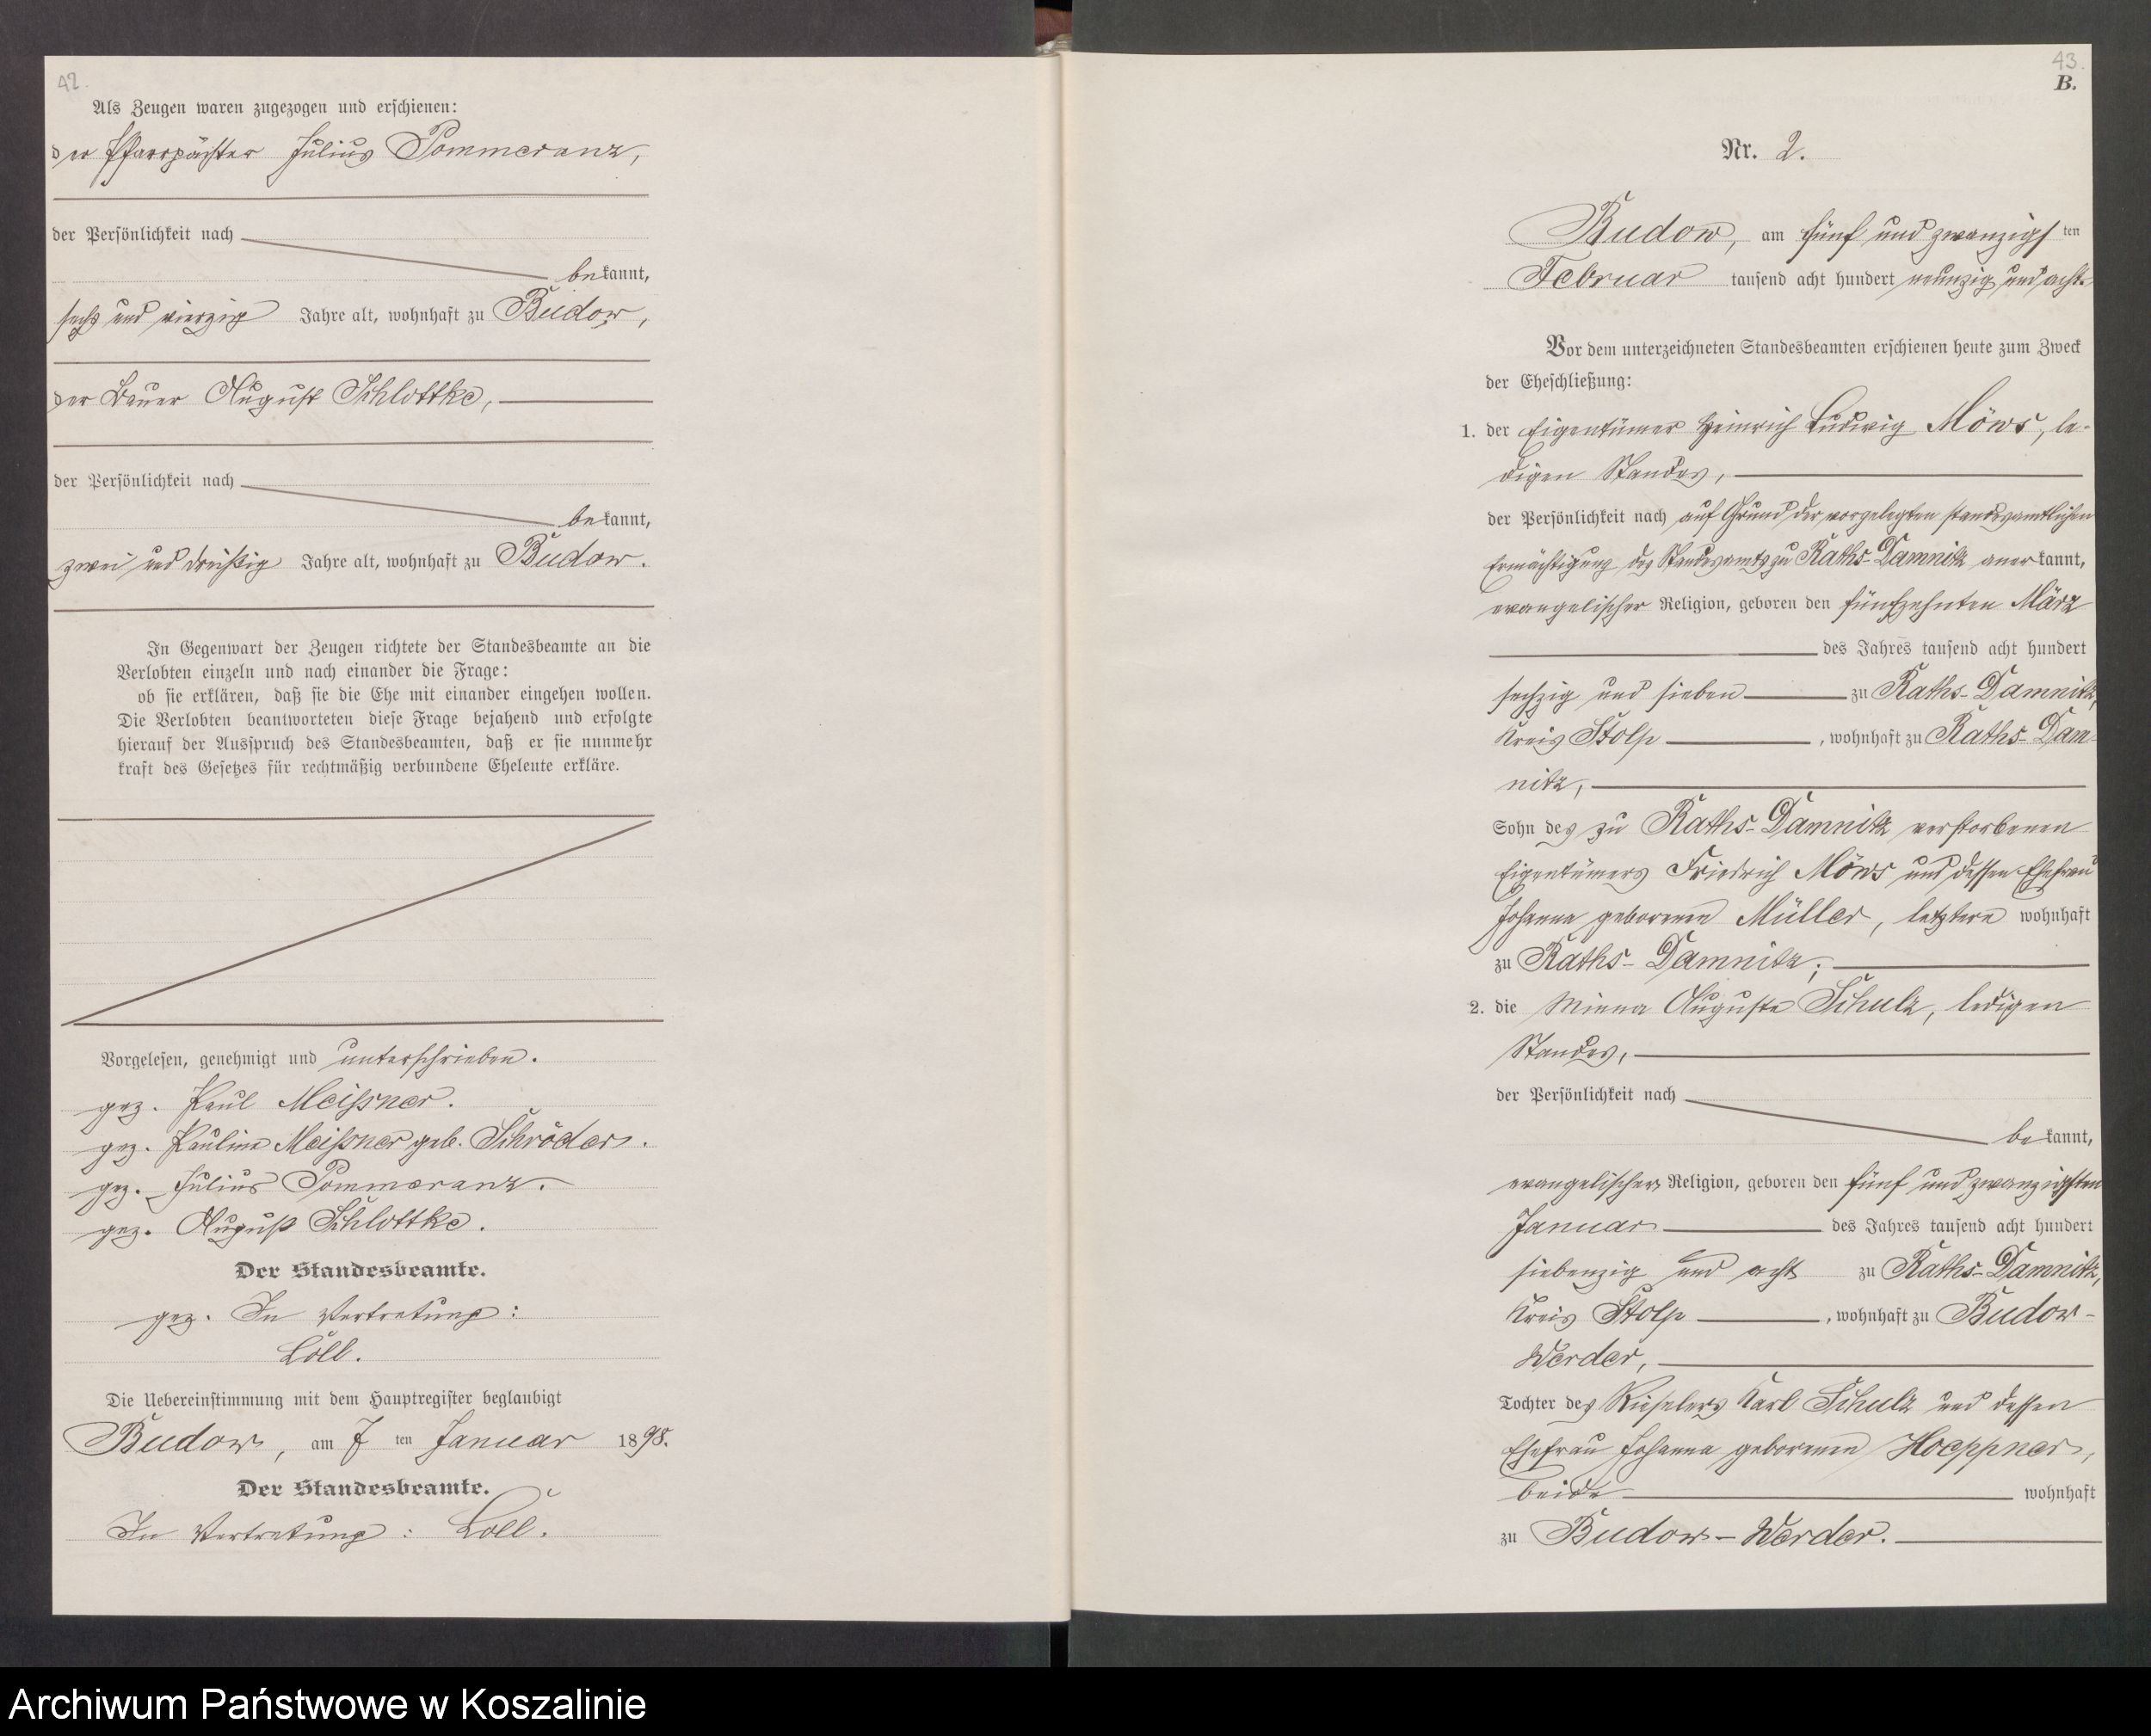 42.
Als Zeugen waren zugezogen und erschienen:
der Pfarrpächter Julius Pommeranz,
der Persönlichkeit nach
bekannt,
sechs und vierzig Jahre alt, wohnhaft zu Budow,
der Bauer August Schlottke,
der Persönlichkeit nach
bekannt,
zwei und dreißig Jahre alt, wohnhaft zu Budow.
In Gegenwart der Zeugen richtete der Standesbeamte an die
Verlobten einzeln und nach einander die Frage:
ob sie erklären, daß sie die Ehe mit einander eingehen wollen.
Die Verlobten beantworteten diese Frage bejahend und erfolgte
hierauf der Ausspruch des Standesbeamten, daß er sie nunmehr
kraft des Gesetzes für rechtmäßig verbundene Eheleute erkläre.
Vorgelesen, genehmigt und unterschrieben.
gez. Paul Meißner.
gez. Pauline Meißner geb. Schröder.
gez. Julius Pommeranz.
gez. August Schlottke.
Der Standesbeamte.
gez. In Vertretung:
Loll.
Die Uebereinstimmung mit dem Hauptregister beglaubigt
Budow, am 7 ten Januar 1898.
Der Standesbeamte.
In Vertretung: Loll.
43.
B.
Nr. 2.
Budow, am fünf und zwanzigsten
Februar tausend acht hundert neunzig und acht.
Vor dem unterzeichneten Standesbeamten erschienen heute zum Zweck
der Eheschließung:
1. der Eigentümer Heinrich Ludwig Möws, le-
digen Standes,
der Persönlichkeit nach auf Grund der vorgelegten standesamtlichen
Ermächtigung des Standesamts zu Raths-Damnitz anerkannt,
evangelischer Religion, geboren den fünfzehnten März
des Jahres tausend acht hundert
sechzig und sieben zu Raths-Damnitz,
Kreis Stolp, wohnhaft zu Raths-Dam-
nitz,
Sohn des zu Raths-Damnitz verstorbenen
Eigentümers Friedrich Möws und dessen Ehefrau
Johanna geborenen Müller, letztere wohnhaft
zu Raths-Damnitz;
2. die Minna Auguste Schulz, ledigen
Standes,
der Persönlichkeit nach
bekannt,
evangelischer Religion, geboren den fünf und zwanzigsten
Januar des Jahres tausend acht hundert
siebenzig und acht zu Raths-Damnitz,
Kreis Stolp, wohnhaft zu Budow-
Werder,
Tochter des Rieselers Karl Schulz und dessen
Ehefrau Johanna geborenen Hoeppner,
beide wohnhaft
zu Budow-Werder.
Archiwum Państwowe w Koszalinie